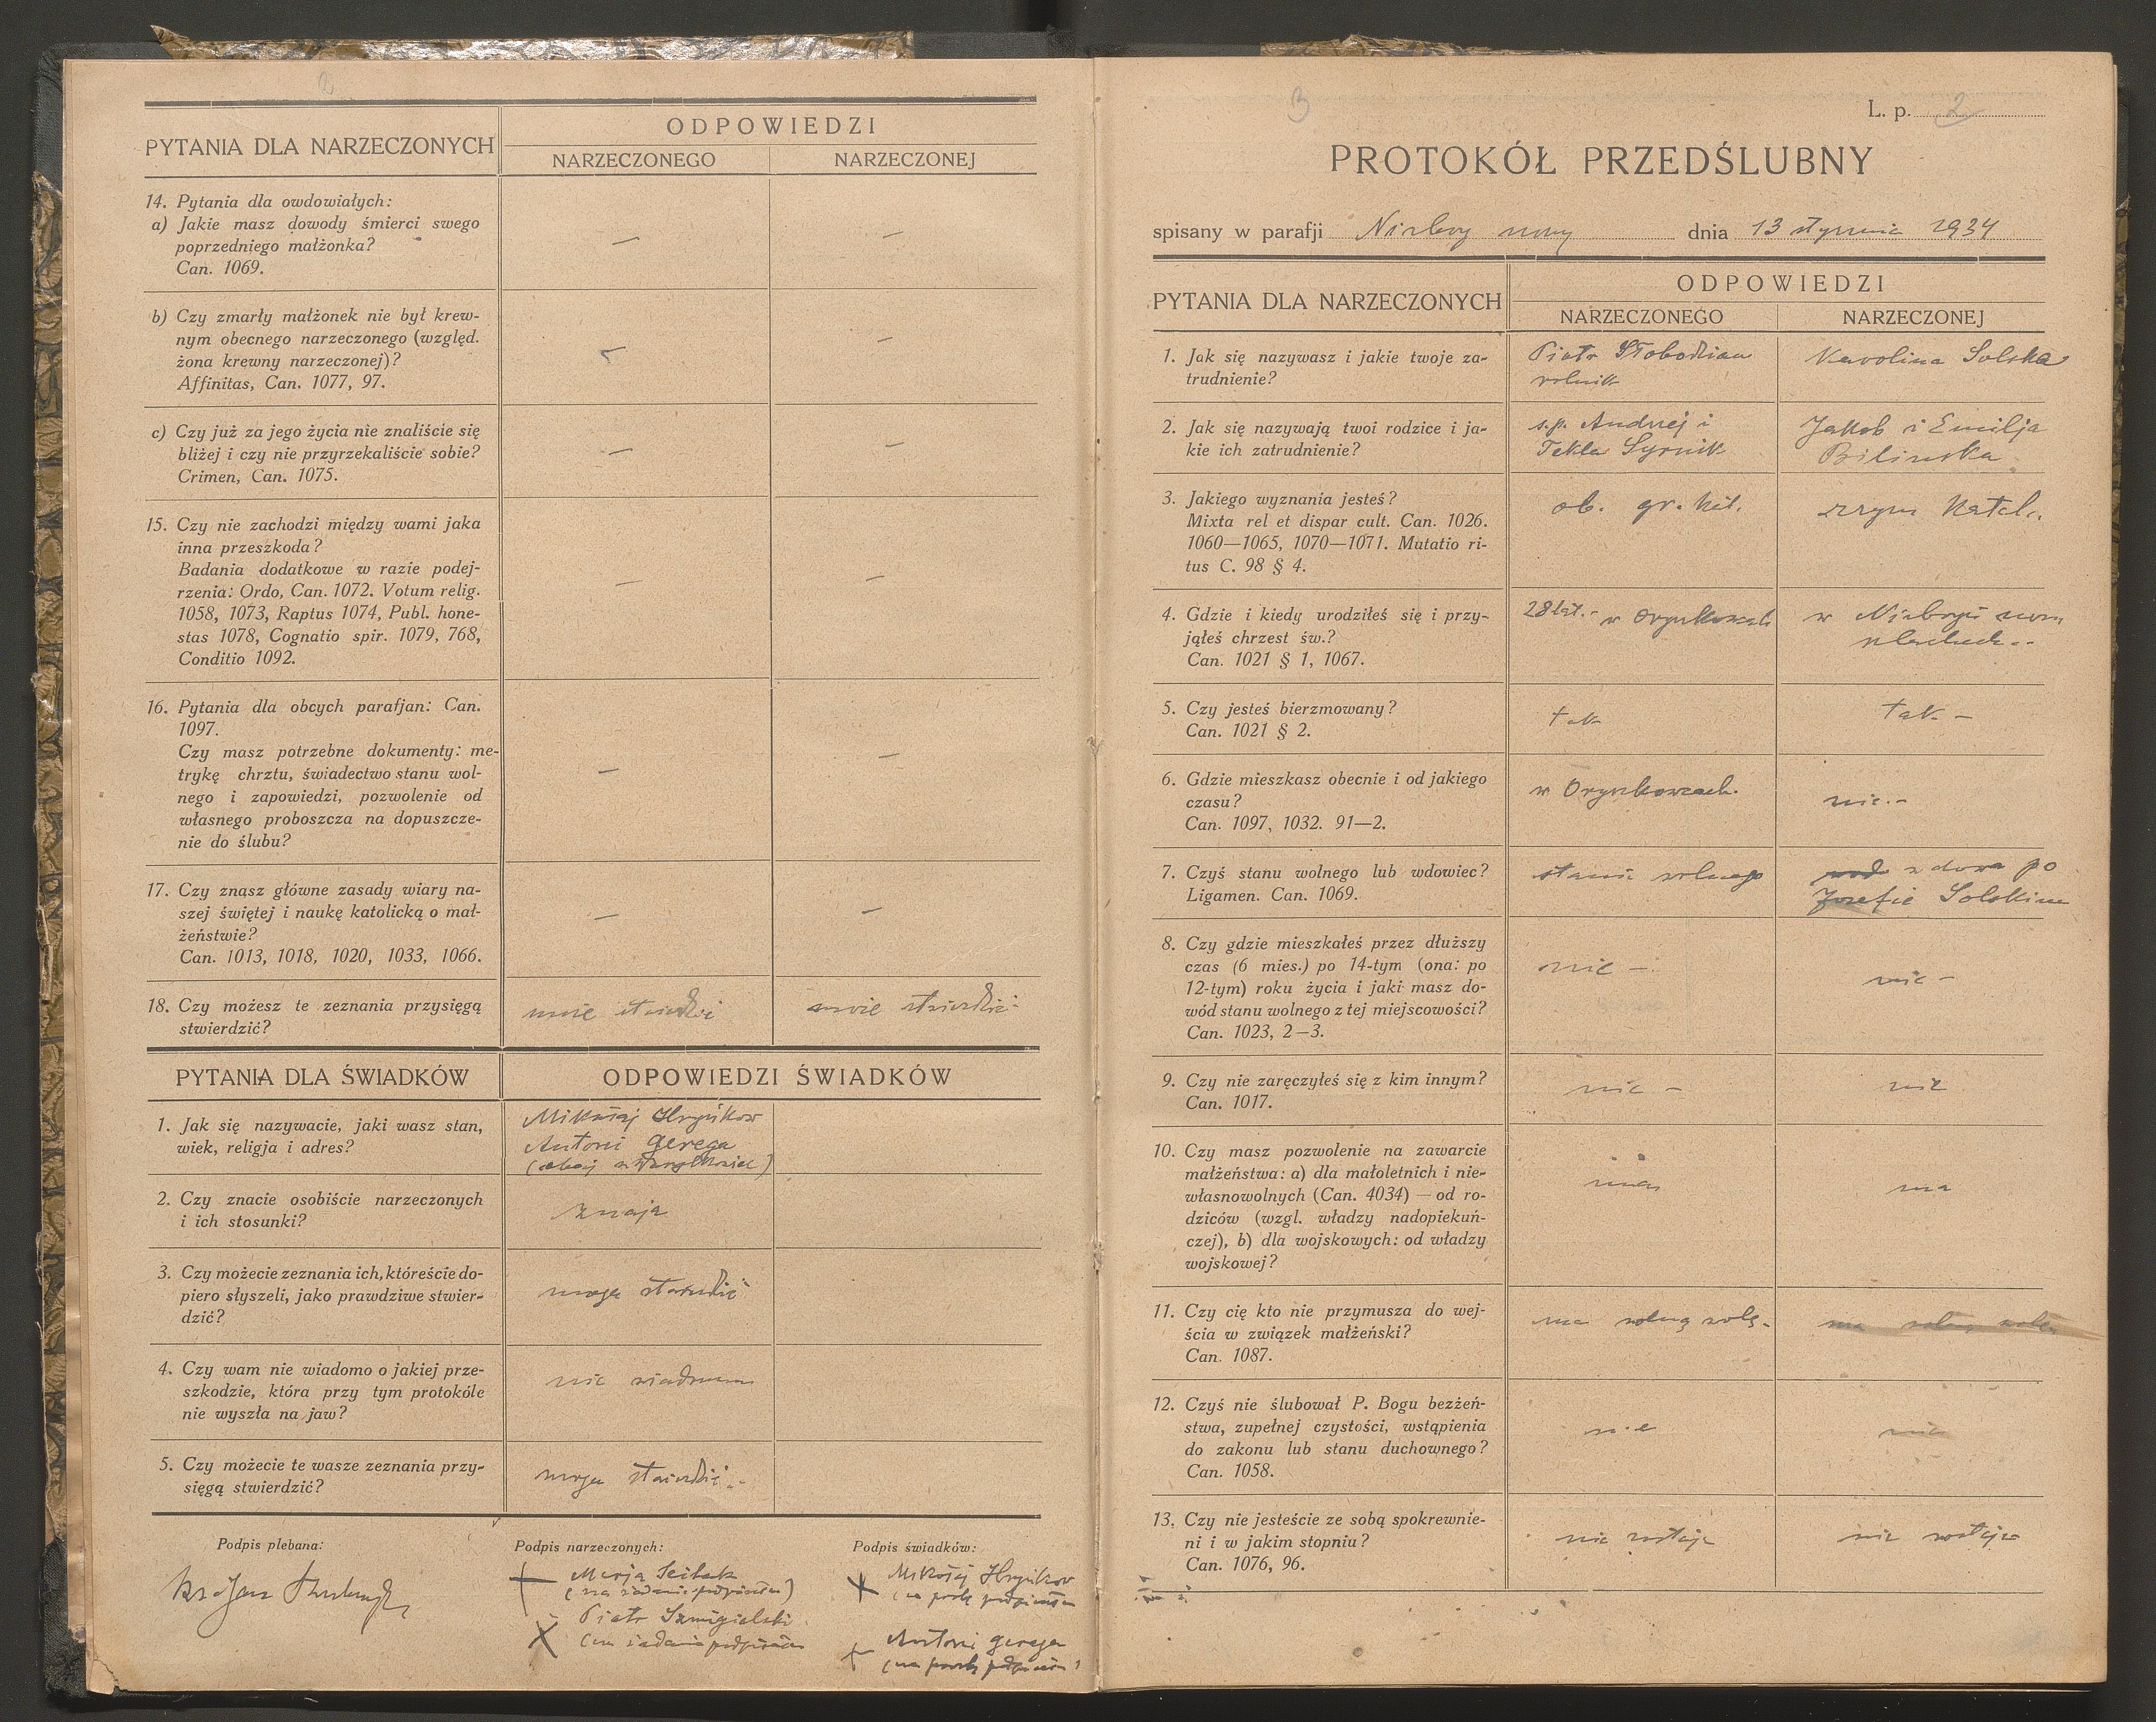 2
PYTANIA DLA NARZECZONYCH
ODPOWIEDZI
NARZECZONEGO
NARZECZONEJ
14. Pytania dla owdowiałych:
a) Jakie masz dowody śmierci swego
poprzedniego małżonka?
Can. 1069.
—
—
b) Czy zmarły małżonek nie był krew-
nym obecnego narzeczonego (względ.
żona krewny narzeczonej)?
Affinitas, Can. 1077, 97.
—
—
c) Czy już za jego życia nie znaliście się
bliżej i czy nie przyrzekaliście sobie?
Crimen, Can. 1075.
—
—
15. Czy nie zachodzi między wami jaka
inna przeszkoda?
Badania dodatkowe w razie podej-
rzenia: Ordo, Can. 1072. Votum relig.
1058, 1073, Raptus 1074, Publ. hone-
stas 1078, Cognatio spir. 1079, 768,
Conditio 1092.
—
—
16. Pytania dla obcych parafjan: Can.
1097.
Czy masz potrzebne dokumenty: me-
trykę chrztu, świadectwo stanu wol-
nego i zapowiedzi, pozwolenie od
własnego proboszcza na dopuszcze-
nie do ślubu?
—
—
17. Czy znasz główne zasady wiary na-
szej świętej i naukę katolicką o mał-
żeństwie?
Can. 1013, 1018, 1020, 1033, 1066.
—
—
18. Czy możesz te zeznania przysięgą
stwierdzić?
może stwierdzić
może stwierdzić
PYTANIA DLA ŚWIADKÓW
ODPOWIEDZI ŚWIADKÓW
1. Jak się nazywacie, jaki wasz stan,
wiek, religja i adres?
Mikołaj Hryńkow
Antoni Gerega
(obaj
2. Czy znacie osobiście narzeczonych
i ich stosunki?
znają
3. Czy możecie zeznania ich, któreście do-
piero słyszeli, jako prawdziwe stwier-
dzić?
mogą stwierdzić
4. Czy wam nie wiadomo o jakiej prze-
szkodzie, która przy tym protokóle
nie wyszła na jaw?
nie wiadomo
5. Czy możecie te wasze zeznania przy-
sięgą stwierdzić?
mogą stwierdzić.-
Podpis plebana:
Podpis narzeczonych:
Podpis świadków:
Ks Jan
+ Marja
X Piotr Szmigielski
X Mikołaj Hryńkow
+ Antoni Gerega
3
L. p. 2
PROTOKÓŁ PRZEDŚLUBNY
spisany w parafji Niżbory nowy dnia 13 stycznia 1934
PYTANIA DLA NARZECZONYCH
ODPOWIEDZI
NARZECZONEGO
NARZECZONEJ
1. Jak się nazywasz i jakie twoje za-
trudnienie?
Piotr Słobodzian
rolnik
Karolina Solska
2. Jak się nazywają twoi rodzice i ja-
kie ich zatrudnienie?
s.p. Andrzej i
Tekla Syrnik
Jakob i Emilja
Bilinska
3. Jakiego wyznania jesteś?
Mixta rel et dispar cult. Can. 1026.
1060—1065, 1070—1071. Mutatio ri-
tus C. 98 § 4.
ob. gr. kat.
rzym katol.
4. Gdzie i kiedy urodziłeś się i przy-
jąłeś chrzest św.?
Can. 1021 § 1, 1067.
28 lat.- w Oryszkowcach
w
5. Czy jesteś bierzmowany?
Can. 1021 § 2.
tak
tak –
6. Gdzie mieszkasz obecnie i od jakiego
czasu?
Can. 1097, 1032. 91—2.
w Oryszkowcach.
nie.-
7. Czyś stanu wolnego lub wdowiec?
Ligamen. Can. 1069.
stanu wolnego
wdowa po
Józefie Solskim
8. Czy gdzie mieszkałeś przez dłuższy
czas (6 mies.) po 14-tym (ona: po
12-tym) roku życia i jaki masz do-
wód stanu wolnego z tej miejscowości?
Can. 1023, 2—3.
nie –
nie –
9. Czy nie zaręczyłeś się z kim innym?
Can. 1017.
nie –
nie
10. Czy masz pozwolenie na zawarcie
małżeństwa: a) dla małoletnich i nie-
własnowolnych (Can. 4034) — od ro-
dziców (wzgl. władzy nadopiekuń-
czej), b) dla wojskowych: od władzy
wojskowej?
ma
ma
11. Czy cię kto nie przymusza do wej-
ścia w związek małżeński?
Can. 1087.
ma wolną wolę.
ma wolną wolę
12. Czyś nie ślubował P. Bogu bezżeń-
stwa, zupełnej czystości, wstąpienia
do zakonu lub stanu duchownego?
Can. 1058.
nie
nie
13. Czy nie jesteście ze sobą spokrewnie-
ni i w jakim stopniu?
Can. 1076, 96.
nie
nie